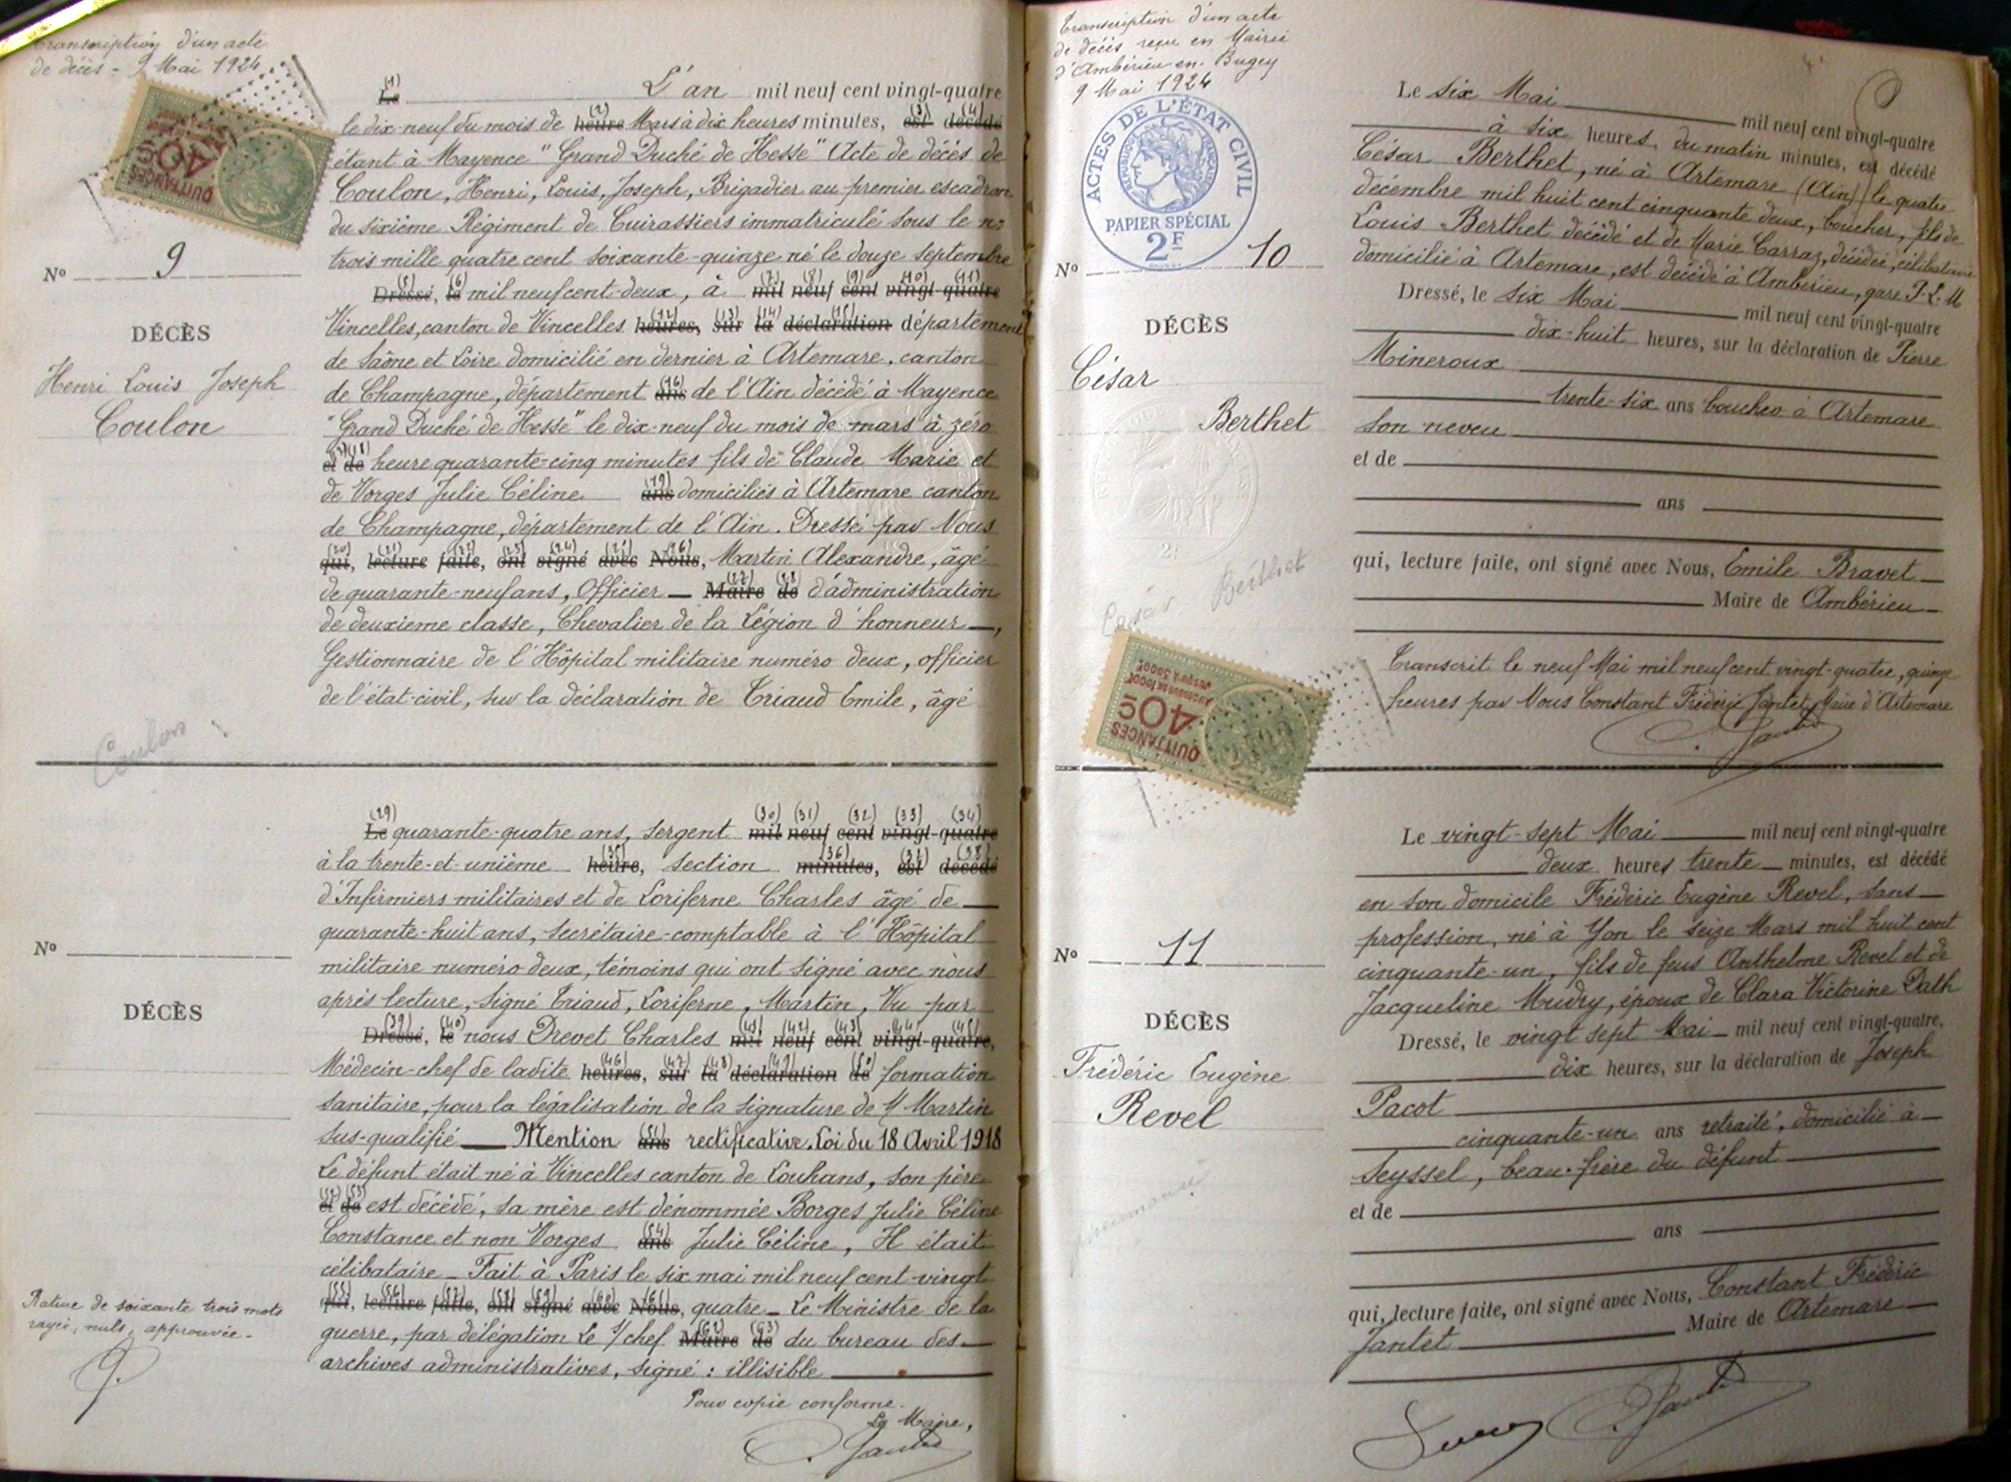 Transcription d'un acte
de décès - 9 Mai 1924
QUITTANCES
40
Nº 9
DÉCÈS
Henri Louis Joseph
Coulon
Coulon
(1)
Le L'an mil neuf cent vingt-quatre
(2) (3) (4)
le dix-neuf du mois de heure Mars à dix heures minutes, est décédé
étant à Mayence "Grand Duché de Hesse" Acte de décès de
Coulon, Henri, Louis, Joseph, Brigadier au premier escadron
du sixième Régiment de Cuirassiers immatriculé sous le nº
trois mille quatre cent soixante-quinze né le douze septembre
(5) (6) (7) (8) (9) (10) (11)
Dressé, le mil neuf cent-deux, à mil neuf cent vingt-quatre
(12) (13) (14) (15)
Vincelles, canton de Vincelles heures, sur la déclaration département
de Saône et Loire domicilié en dernier à Artemare, canton
(16)
de Champagne, département ans de l'Ain décédé à Mayence
"Grand Duché de Hesse" le dix-neuf du mois de mars à zéro
(17) (18)
et de heure quarante-cinq minutes fils de Claude Marie et
(19)
de Vorges Julie Céline ans domiciliés à Artemare canton
de Champagne, département de l'Ain. Dressé par Nous
(20) (21) (22) (23) (24) (25) (26)
qui, lecture faite, ont signé avec Nous, Martin Alexandre, âgé
(27) (28)
de quarante-neuf ans, Officier Maire de d'administration
de deuxième classe, Chevalier de la Légion d'honneur,
Gestionnaire de l'Hôpital militaire numéro deux, officier
de l'état-civil, sur la déclaration de Triaud Emile, âgé
Nº
DÉCÈS
Rature de soixante trois mots
rayés, nuls, approuvée.
(29) (30) (31) (32) (33) (34)
Le quarante-quatre ans, sergent mil neuf cent vingt-quatre
(35) (36) (37) (38)
à la trente-et-unième heure, section minutes, est décédé
d'Infirmiers militaires et de Loriferne Charles âgé de
quarante-huit ans, secrétaire-comptable à l'Hôpital
militaire numéro deux, témoins qui ont signé avec nous
après lecture, signé Triaud, Loriferne, Martin, Vu par
(39) (40) (41) (42) (43) (44) (45)
Dressé, le nous Drevet Charles mil neuf cent vingt-quatre,
(46) (47) (48) (49) (50)
Médecin-chef de ladite heures, sur la déclaration de formation
sanitaire, pour la légalisation de la signature de M Martin
(51)
sus-qualifié Mention ans rectificative. Loi du 18 Avril 1918
Le défunt était né à Vincelles canton de Louhans, son père
(52) (53)
et de est décédé, sa mère est dénommée Borges Julie Céline
(54)
Constance et non Vorges ans Julie Céline, Il était
célibataire Fait à Paris le six mai mil neuf cent-vingt
(55) (56) (57) (58) (59) (60) (61)
qui, lecture faite, ont signé avec Nous, quatre Le Ministre de la
(62) (63)
guerre, par délégation Le S/chef Maire de du bureau des
archives administratives, signé : illisible
Pour copie conforme.
Le Maire,
C. Jantet
Transcription d'un acte
de décès reçu en Mairie
d'Ambérieu-en-Bugey
9 Mai 1924
ACTES DE L'ÉTAT CIVIL
RÉPUBLIQUE FRANÇAISE
PAPIER SPÉCIAL
2F
Nº 10
DÉCÈS
César
Berthet
César Berthet
QUITTANCES
40c
Le six Mai mil neuf cent vingt-quatre
à six heures du matin minutes, est décédé
César Berthet, né à Artemare (Ain) le quatre
décembre mil huit cent cinquante deux, boucher, fils de
Louis Berthet décédé et de Marie Carraz, décédée, célibataire
domicilié à Artemare, est décédé à Ambérieu, gare P.L.M
Dressé, le six Mai mil neuf cent vingt-quatre
dix-huit heures, sur la déclaration de Pierre
Mineroux
trente-six ans boucher à Artemare
son neveu
et de
ans
qui, lecture faite, ont signé avec Nous, Emile Bravet
Maire de Ambérieu
Transcrit le neuf Mai mil neuf cent vingt-quatre, quinze
heures par Nous Constant Frédéric Jantet Maire d'Artemare
C. Jantet
Nº 11
DÉCÈS
Frédéric Eugène
Revel
Le vingt-sept Mai mil neuf cent vingt-quatre
deux heures trente minutes, est décédé
en son domicile Frédéric Eugène Revel, sans
profession, né à Yon le seize Mars mil huit cent
cinquante-un, fils de feus Anthelme Revel et de
Jacqueline Mudry, époux de Clara Victorine Dath
Dressé, le vingt sept Mai mil neuf cent vingt-quatre,
dix heures, sur la déclaration de Joseph
Pacot
cinquante-un ans retraité, domicilié à
Seyssel, beau-frère du défunt
et de
ans
qui, lecture faite, ont signé avec Nous, Constant Frédéric
Jantet Maire de Artemare
C. Jantet